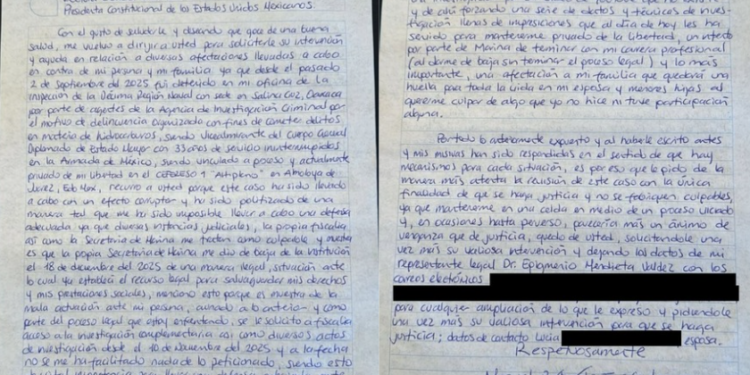 Presidenta Constitucional de los Estados Unidos Mexicanos
Con el gusto de saludarle y deseando que goce de una buena
salud, me vuelvo a dirigir a usted para solicitarle su intervención
y ayuda en relación a diversas afectaciones llevadas a cabo
en contra de mi persona y mi familia, ya que desde el pasado
2 de septiembre del 2025 fui detenido en mi oficina de la
Inspección de la Décima Región Naval con sede en Salina Cruz, Oaxaca
por parte de agentes de la Agencia de Investigación Criminal por
el motivo de delincuencia organizada con fines de cometer delitos
en materia de hidrocarburos, siendo Vicealmirante del Cuerpo General
Diplomado de Estado Mayor con 33 años de servicio ininterrumpidos
en la Armada de México, siendo vinculado a proceso y actualmente
privado de mi libertad en el CEFERESO 1 "Altiplano" en Almoloya de
Juárez, Edo Mex, recurro a usted porque este caso ha sido llevado
a cabo con un efecto corruptor y ha sido politizado de una
manera tal que me ha sido imposible llevar a cabo una defensa
adecuada ya que diversas instancias judiciales, la propia fiscalía
así como la Secretaría de Marina me tratan como culpable y muestra
es que la propia Secretaría de Marina me dio de baja de la institución
el 18 de diciembre del 2025 de una manera ilegal, situación ante
lo cual ya establecí el recurso legal para salvaguardar mis derechos
y mis prestaciones sociales, menciono esto porque es muestra de la
mala actuación ante mi persona, aunado a lo anterior y como
parte del proceso legal que estoy enfrentando, se le solicitó a fiscalía
acceso a la investigación complementaria así como diversos actos
de investigación desde el 10 de Noviembre del 2025 y a la fecha
no se me ha facilitado nada de lo peticionado, siendo esto
y de estar forzando una serie de datos y técnicas de inves-
tigación llenas de imprecisiones que al día de hoy les ha
servido para mantenerme privado de la libertad, un intento
por parte de Marina de terminar con mi carrera profesional
(al darme de baja sin terminar el proceso legal) y lo más
importante, una afectación a mi familia que quedará una
huella para toda la vida en mi esposa y menores hijas al
quererme culpar de algo que yo no hice ni tuve participación
alguna.
Por todo lo anteriormente expuesto y al haberle escrito antes
y mis misivas han sido respondidas en el sentido de que hay
mecanismos para cada situación, es por eso que le pido de la
manera más atenta la revisión de este caso con la única
finalidad de que se haga justicia y no se fabriquen culpables,
ya que mantenerme en una celda en medio de un proceso viciado
y, en ocasiones hasta perverso, parecería más un ánimo de
venganza que de justicia, quedo de usted, solicitándole una
vez más su valiosa intervención y dejando los datos de mi
representante legal Dr. Epigmenio Mendieta Valdez con los
correos electrónicos
para cualquier ampliación de lo que le expreso y pidiéndole
una vez más su valiosa intervención para que se haga
justicia; datos de contacto Lucía esposa.
Respetuosamente